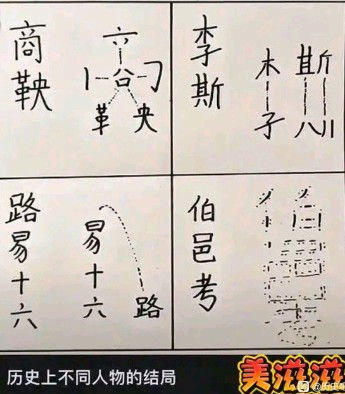 商鞅
六
革 央
李斯
木
子
路易十六
易十六
路
伯邑考
历史上不同人物的结局
美滋滋